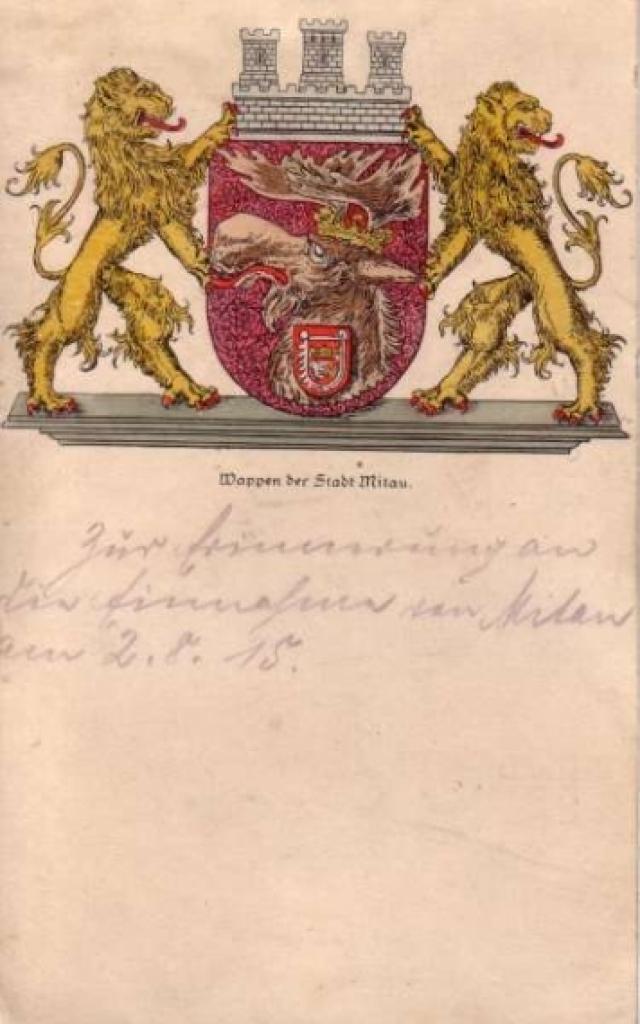 Wappen der Stadt Mitau.
Zur Erinnerung an
die Einnahme von Mitau
am 2.8.15.